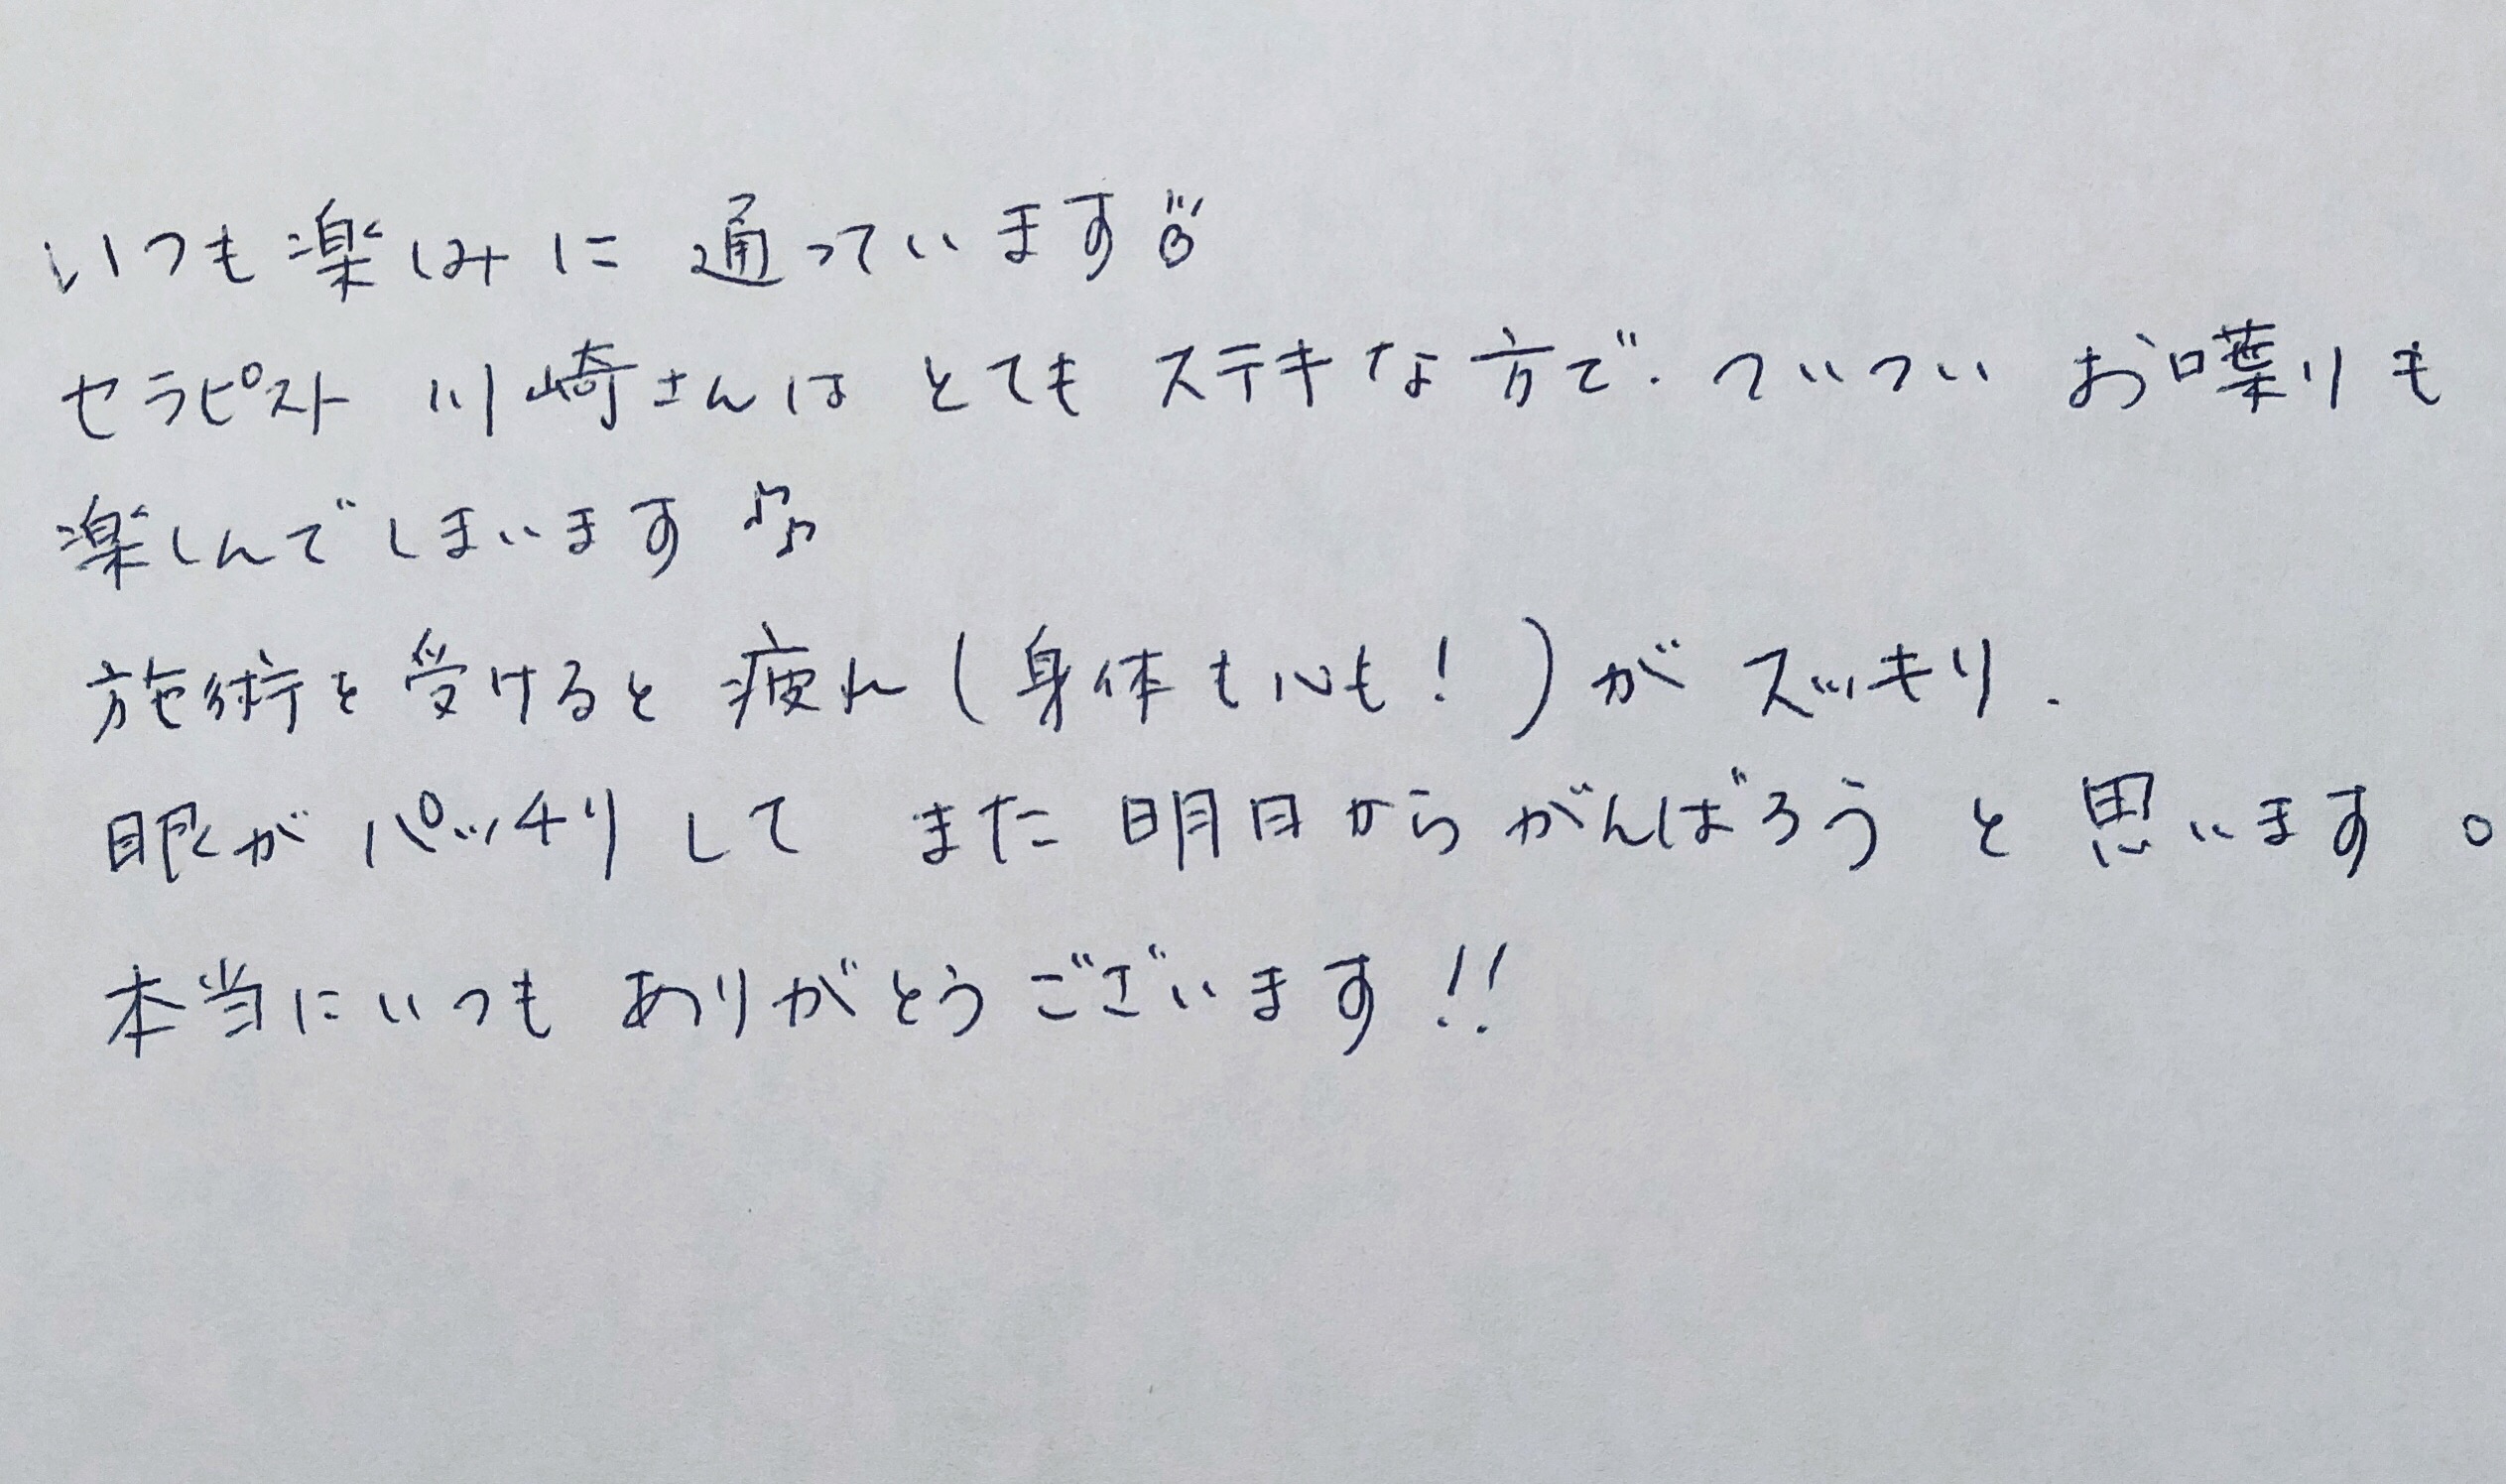 いつも楽しみに通っています
セラピスト 川崎さんは とても ステキな方で、ついつい お喋りも
楽しんでしまいます ♪♪
施術を受けると疲れ(身体も心も!)がスッキリ、
眼がパッチリして また明日からがんばろうと思います。
本当にいつもありがとうございます!!